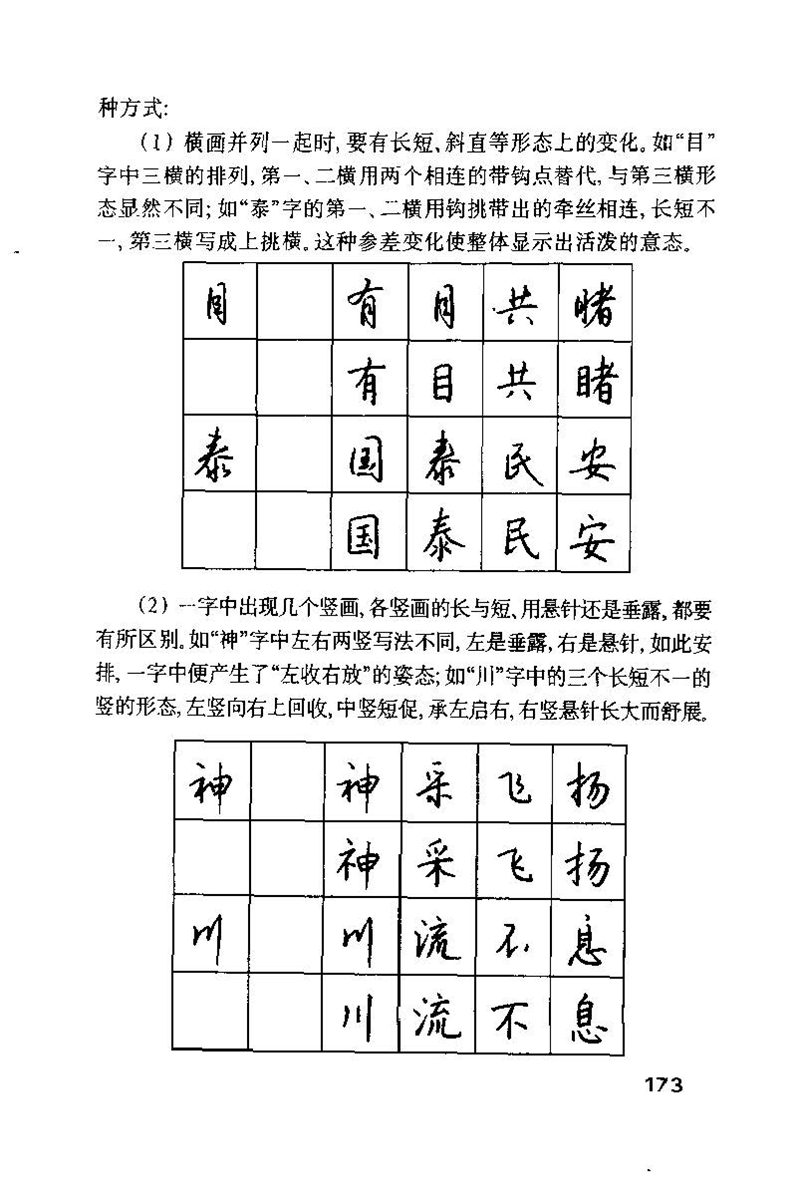 种方式:
(1) 横画并列一起时,要有长短、斜直等形态上的变化。如“目”
字中三横的排列,第一、二横用两个相连的带钩点替代,与第三横形
态显然不同;如“泰”字的第一、二横用钩挑带出的牵丝相连,长短不
一,第三横写成上挑横。这种参差变化使整体显示出活泼的意态。
目 有目共睹
有目共睹
泰 国泰民安
国泰民安
(2) 一字中出现几个竖画,各竖画的长与短、用悬针还是垂露,都要
有所区别。如“神”字中左右两竖写法不同,左是垂露,右是悬针,如此安
排,一字中便产生了“左收右放”的姿态;如“川”字中的三个长短不一的
竖的形态,左竖向右上回收,中竖短促,承左启右,右竖悬针长大而舒展。
神 神采飞扬
神采飞扬
川 川流不息
川流不息
173